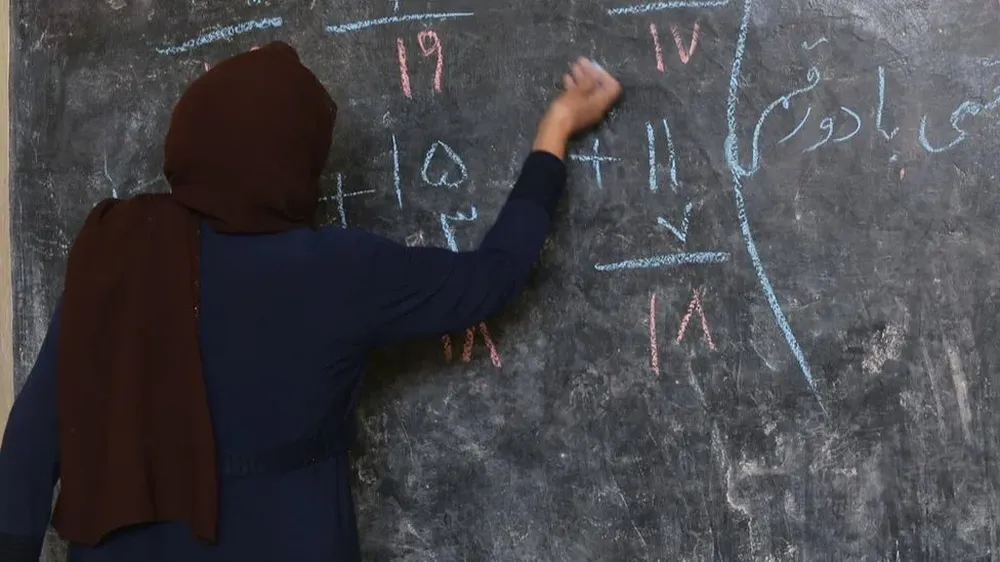 با دو رقمی
۱۷ ۱۹
+ ۱۱ + ۱۵
۷ ۳
۱۸ ۱۸